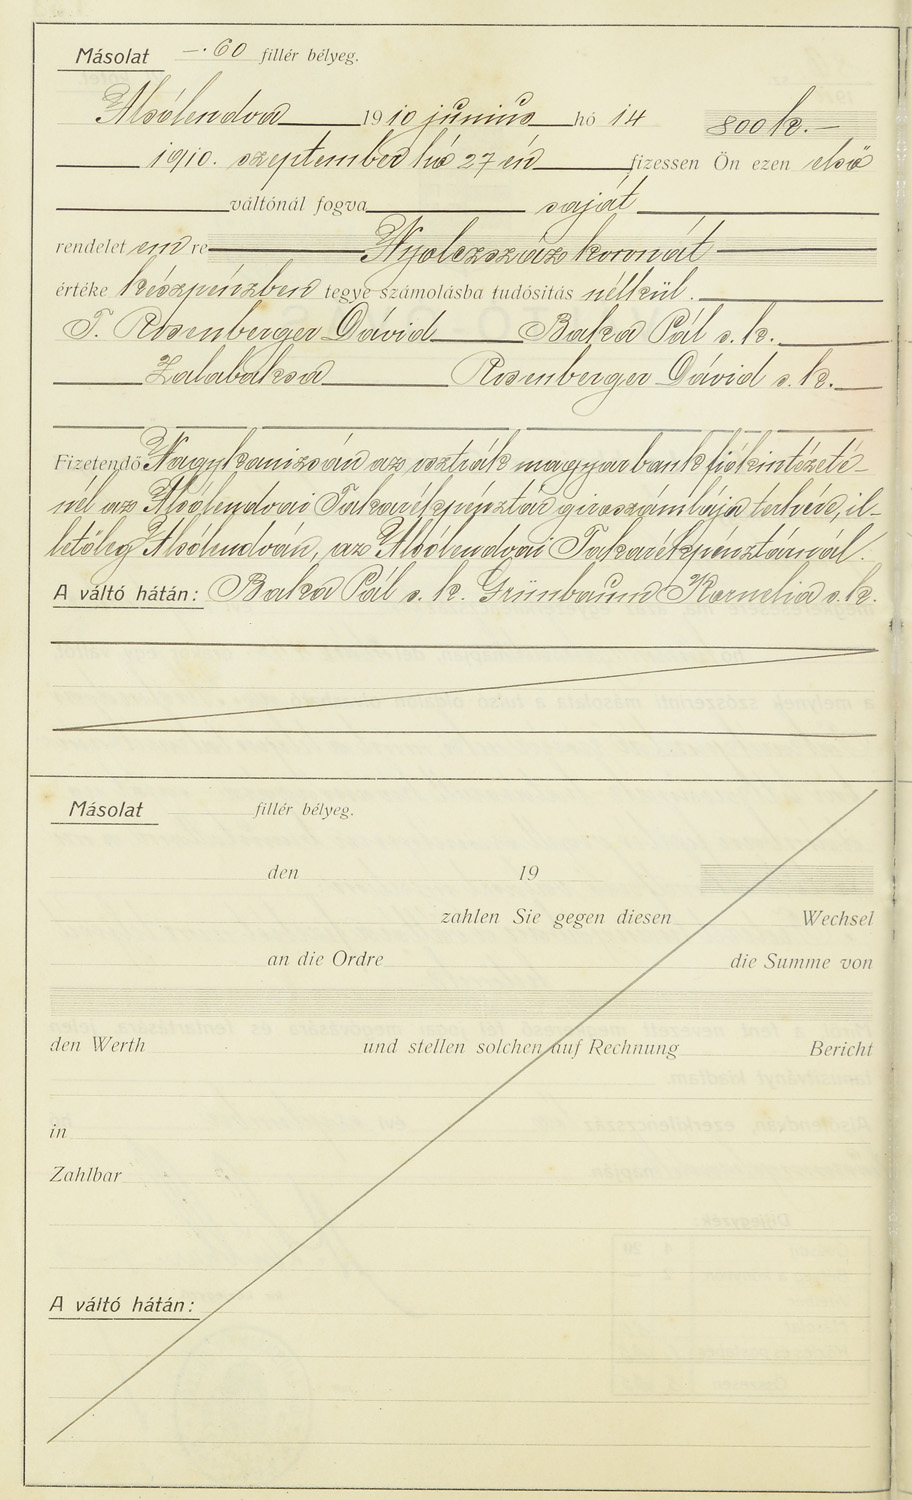 Másolat —.60 fillér bélyeg.
Alsólendva 1910 junius hó 14 800 k.—
1910. szeptember hó 27 én fizessen Ön ezen első
váltónál fogva saját
rendelet em re Nyolczszáz koronát
értéke készpénzben tegye számolásba tudósitás nélkül.
T. Rosenberger Dávid Baka Pál s. k.
Zalabaksa Rosenberger Dávid s. k.
Fizetendő Nagykanizsán az osztrák magyar bank fiókintézeté-
nél az Alsólendvai Takarékpénztár giroszámlája terhére, il-
letőleg Alsólendván, az Alsólendvai Takarékpénztárnál.
A váltó hátán: Baka Pál s. k. Grünbaum Kornelia s. k.
Másolat fillér bélyeg.
den 19
zahlen Sie gegen diesen Wechsel
an die Ordre die Summe von
den Werth und stellen solchen auf Rechnung Bericht
in
Zahlbar
A váltó hátán: